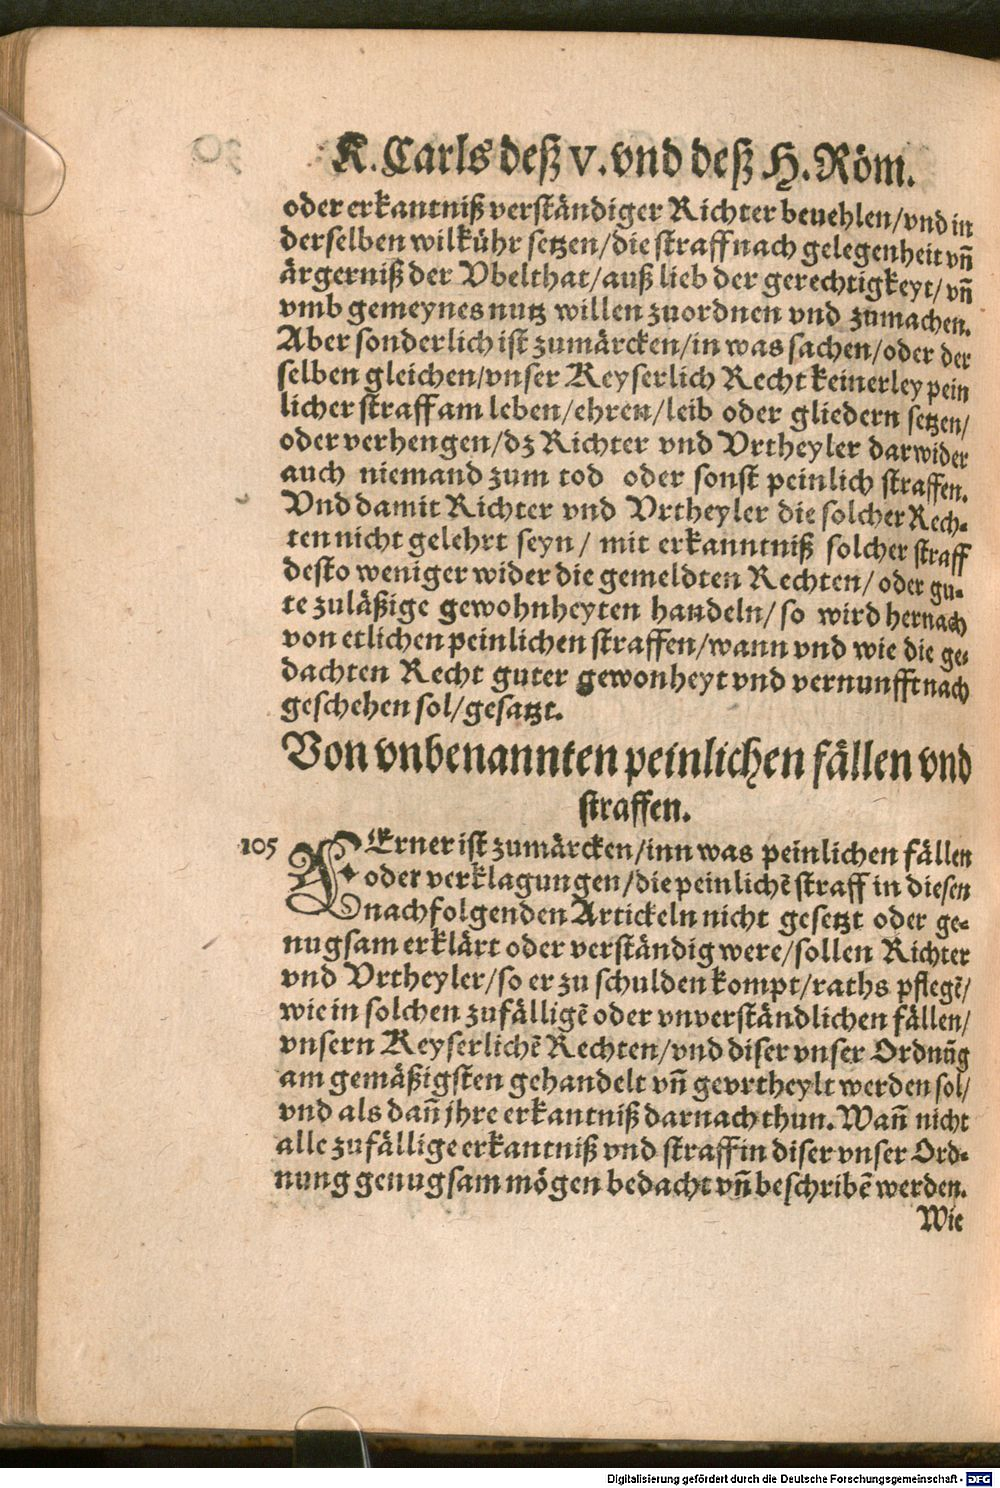 K. Carls deß V. vnd deß H. Röm.
oder erkantniß verständiger Richter beuehlen/vnd in
derselben wilkühr setzen/die straff nach gelegenheit vñ
ärgerniß der Vbelthat/auß lieb der gerechtigkeyt/vñ
vmb gemeynes nutz willen zuordnen vnd zumachen.
Aber sonderlich ist zumärcken/in was sachen/oder der
selben gleichen/vnser Keyserlich Recht keinerley pein
licher straff am leben/ehren/leib oder gliedern setzen/
oder verhengen/dz Richter vnd Vrtheyler darwider
auch niemand zum tod oder sonst peinlich straffen.
Vnd damit Richter vnd Vrtheyler die solcher Rech-
ten nicht gelehrt seyn/ mit erkanntniß solcher straff
desto weniger wider die gemeldten Rechten/ oder gu-
te zuläßige gewohnheyten handeln/ so wird hernach
von etlichen peinlichen straffen/wann vnd wie die ge-
dachten Recht guter gewonheyt vnd vernunfft nach
geschehen sol/gesatzt.
Von vnbenannten peinlichen fällen vnd
straffen.
105 FErner ist zumärcken/inn was peinlichen fällen
oder verklagungen/die peinlichẽ straff in diesen
nachfolgenden Artickeln nicht gesetzt oder ge-
nugsam erklärt oder verständig were/sollen Richter
vnd Vrtheyler/so er zu schulden kompt/raths pflegẽ/
wie in solchen zufälligẽ oder vnverständlichen fällen/
vnsern Keyserlichẽ Rechten/vnd diser vnser Ordnũg
am gemäßigsten gehandelt vñ gevrtheylt werden sol/
vnd als dañ jhre erkantniß darnach thun. Wañ nicht
alle zufällige erkantniß vnd straff in diser vnser Ord-
nung genugsam mögen bedacht vñ beschribẽ werden.
Wie
Digitalisierung gefördert durch die Deutsche Forschungsgemeinschaft - DFG